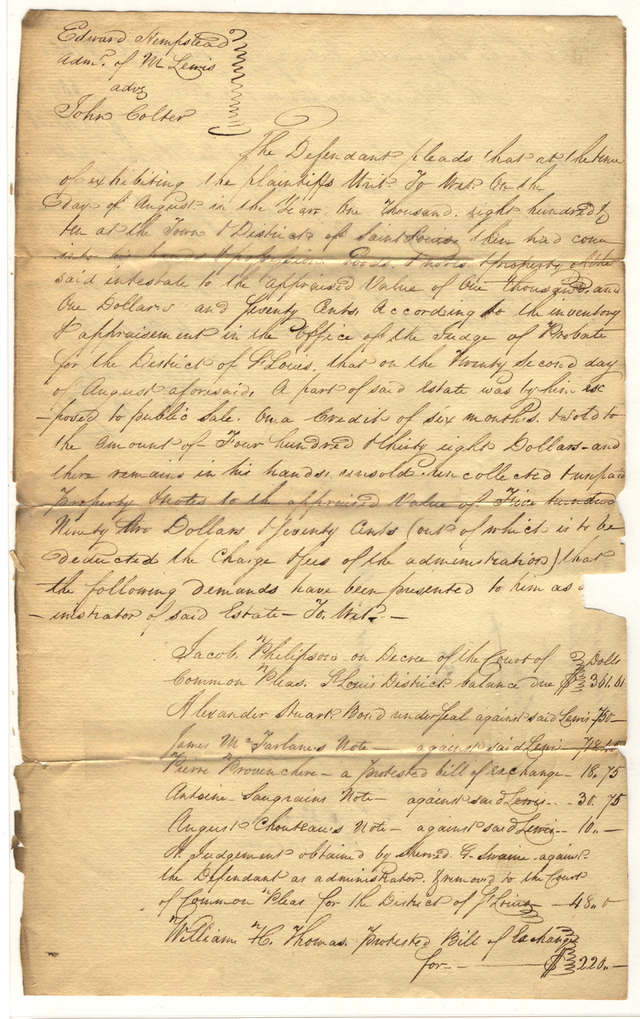 Edward Hempstead
Admr. of M Lewis
advs
John Colter
The Defendant pleads that at the time
of exhibiting the plaintiffs Writ. To Wit. On the
day of August in the Year One thousand eight hundred &
ten at the Town & District of Saint Louis then had come
into his hands & possession Goods, & notes & property of the
said intestate to the appraised Value of One thousand and
One Dollars and Seventy Cents According to the inventory
& appraisement in the Office of the Judge of Probate
for the District of St Louis, that on the Twenty Second day
of August aforesaid, A part of said Estate was by him ex
-posed to public Sale. On a Credit of six months. & sold to
the Amount of Four hundred & thirty eight Dollars - and
there remains in his hands unsold & uncollected & unpaid
property & notes to the appraised Value of Five hundred
Ninety two Dollars & Seventy Cents (out of which is to be
deducted the Charge & fees of the administration) that
the following demands have been presented to him as
-inistrator of said Estate - To Wit. -
Jacob Philipson on Decree of the Court of Dolls
Common Pleas St Louis District balance due $ 361.61
Alexander Stuart Bond under seal against said Lewis 750 -
James McFarlane's Note - against said Lewis
Pierre Provenchere - a protested bill of exchange - 18.75
Antoine Saugrains Note - against said Lewis - 30.75
August Chouteau's Note - against said Lewis - 10 -
A Judgement obtained by G. Swaine against
the Defendant as administrator & removed to the Court
of Common Pleas for the District of St Louis - 48.0
William H. Thomas protested Bill of Exchange
for - $ 220 -